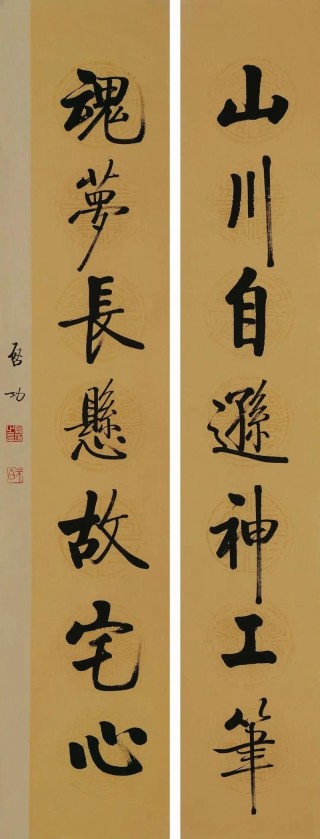 山川自遜神工筆
魂夢長懸故宅心
启功